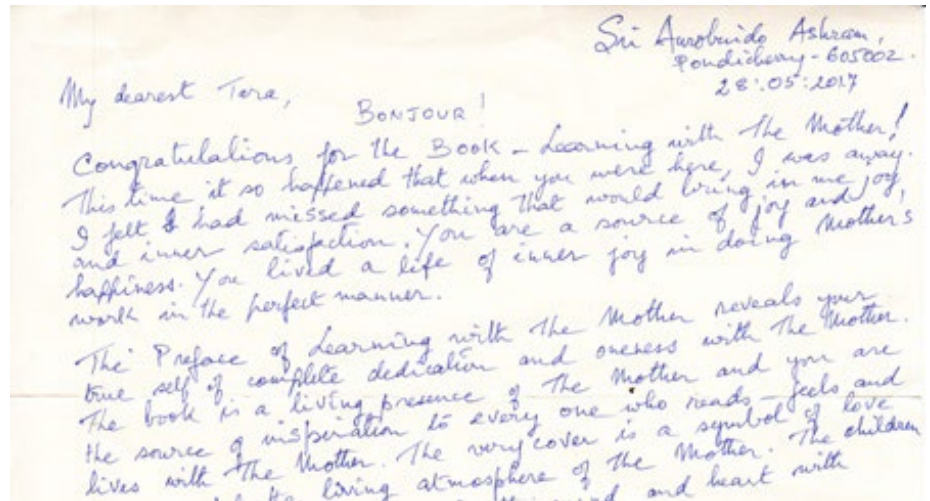 Sri Aurobindo Ashram,
Pondicherry - 605002.
28:05:2017
My dearest Tara,
BONJOUR!
Congratulations for the Book - Learning with The Mother!
This time it so happened that when you were here, I was away.
I felt I had missed something that would bring in me joy
and inner satisfaction. You are a source of joy and
happiness. You lived a life of inner joy in doing Mother's
work in the perfect manner.
The Preface of Learning with The Mother reveals your
true self of complete dedication and oneness with The Mother.
The book is a living presence of The Mother and you are
the source of inspiration to every one who reads - feels and
lives with The Mother. The very cover is a symbol of love
living atmosphere of The Mother. The children
and heart with